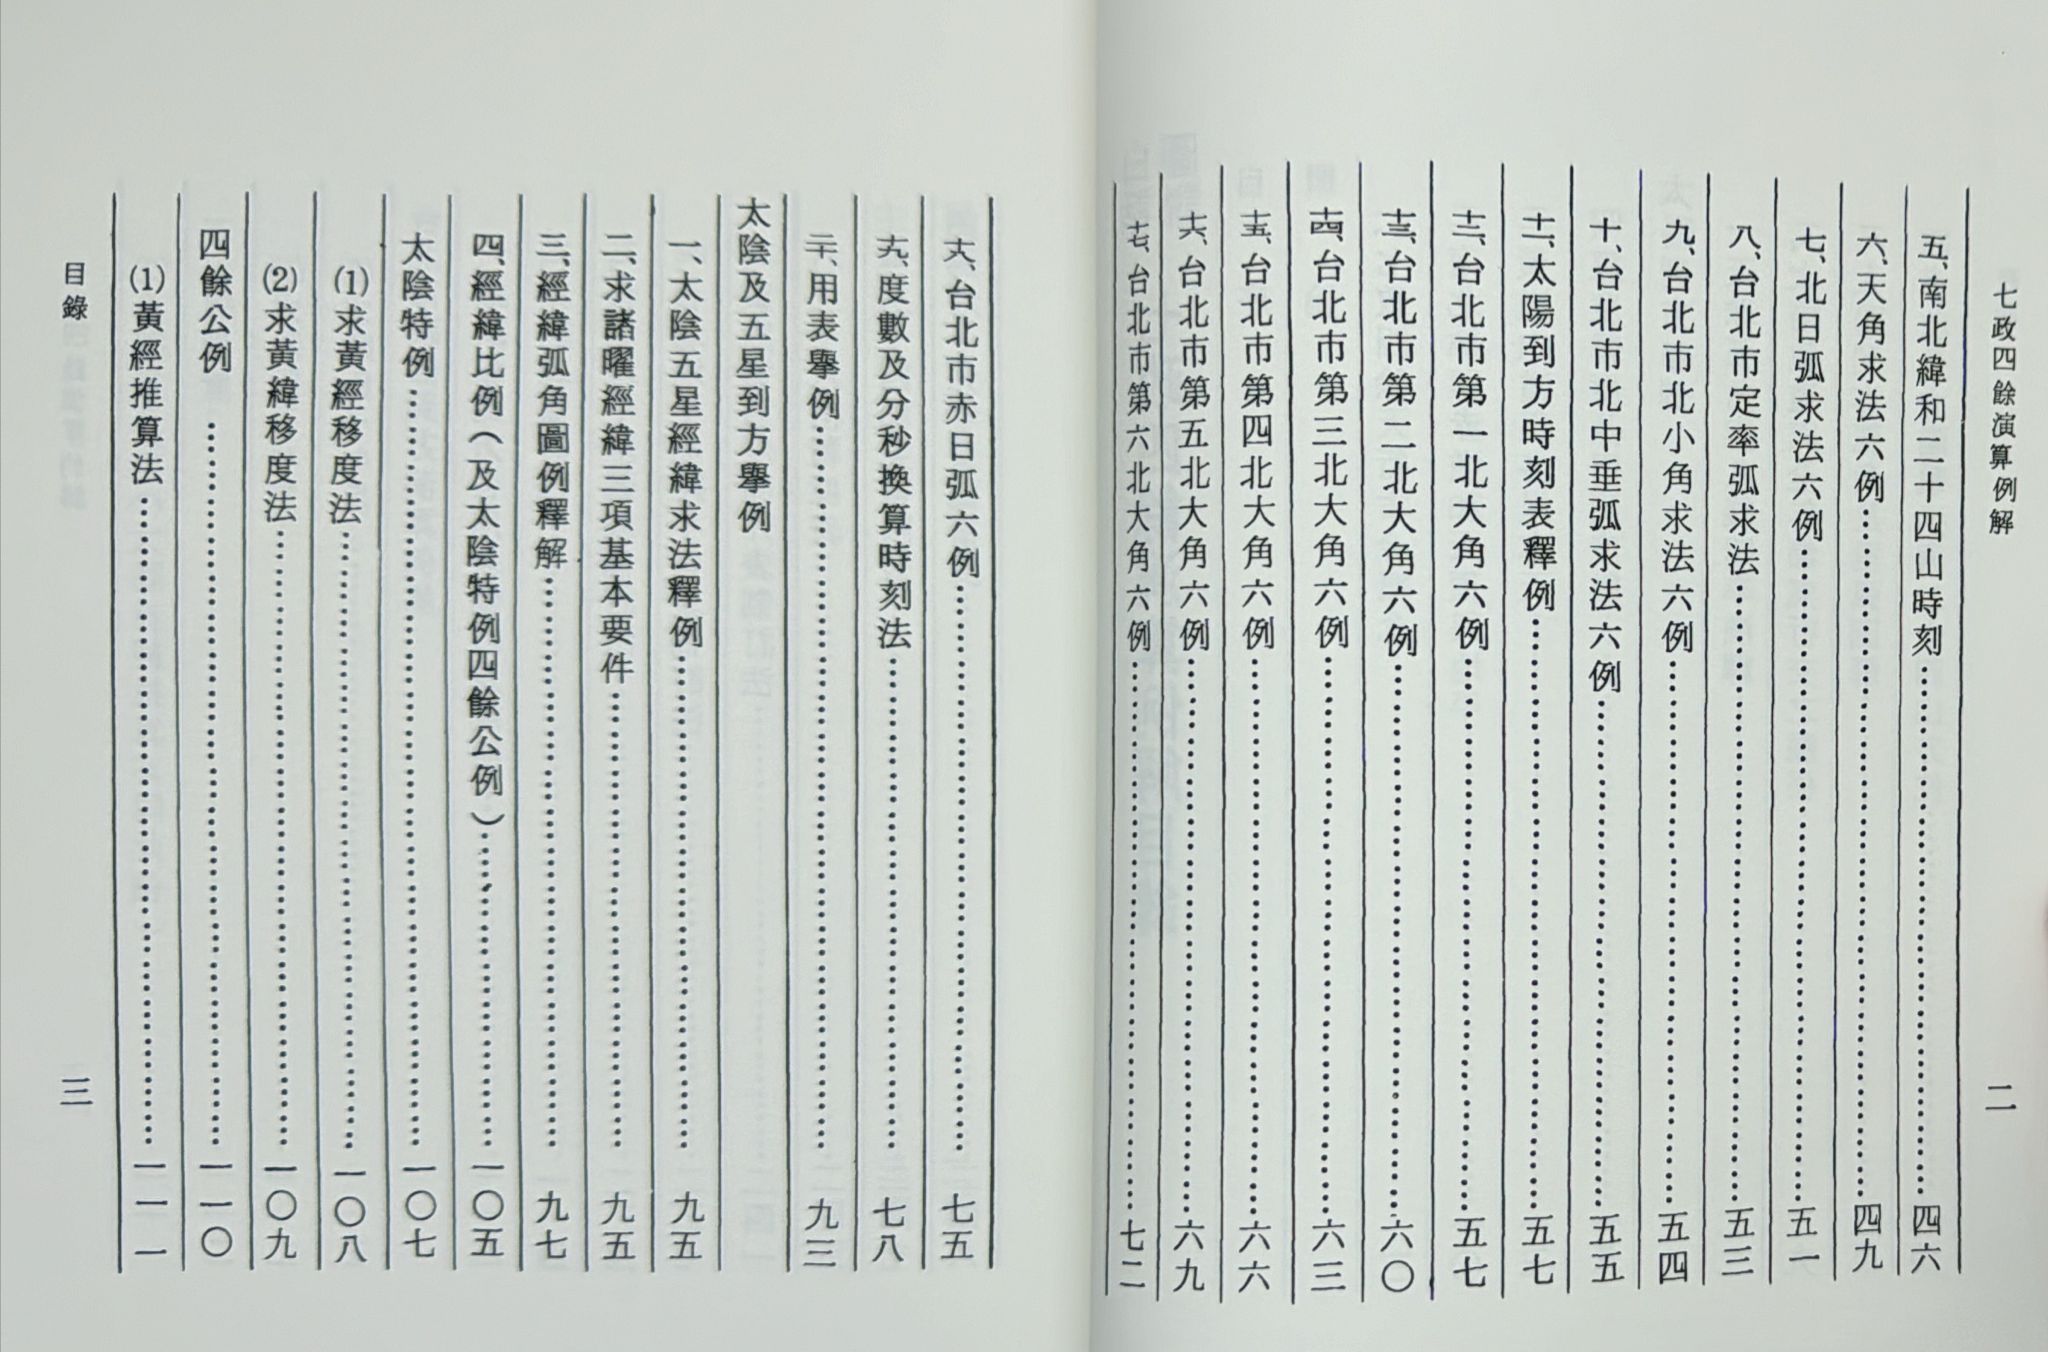 七政四餘演算例解
二
五、南北緯和二十四山時刻……四六
六、天角求法六例……四九
七、北日弧求法六例……五一
八、台北市定率弧求法……五三
九、台北市北小角求法六例……五四
十、台北市北中垂弧求法六例……五五
十一、太陽到方時刻表釋例……五七
十二、台北市第一北大角六例……五七
十三、台北市第二北大角六例……六〇
十四、台北市第三北大角六例……六三
十五、台北市第四北大角六例……六六
十六、台北市第五北大角六例……六九
十七、台北市第六北大角六例……七二
十八、台北市赤日弧六例……七五
十九、度數及分秒換算時刻法……七八
二十、用表舉例……九三
太陰及五星到方舉例
一、太陰五星經緯求法釋例……九五
二、求諸曜經緯三項基本要件……九五
三、經緯弧角圖例釋解……九七
四、經緯比例（及太陰特例四餘公例）……一〇五
太陰特例……一〇七
(1)求黃經移度法……一〇八
(2)求黃緯移度法……一〇九
四餘公例……一一〇
(1)黃經推算法……一一一
目錄
三